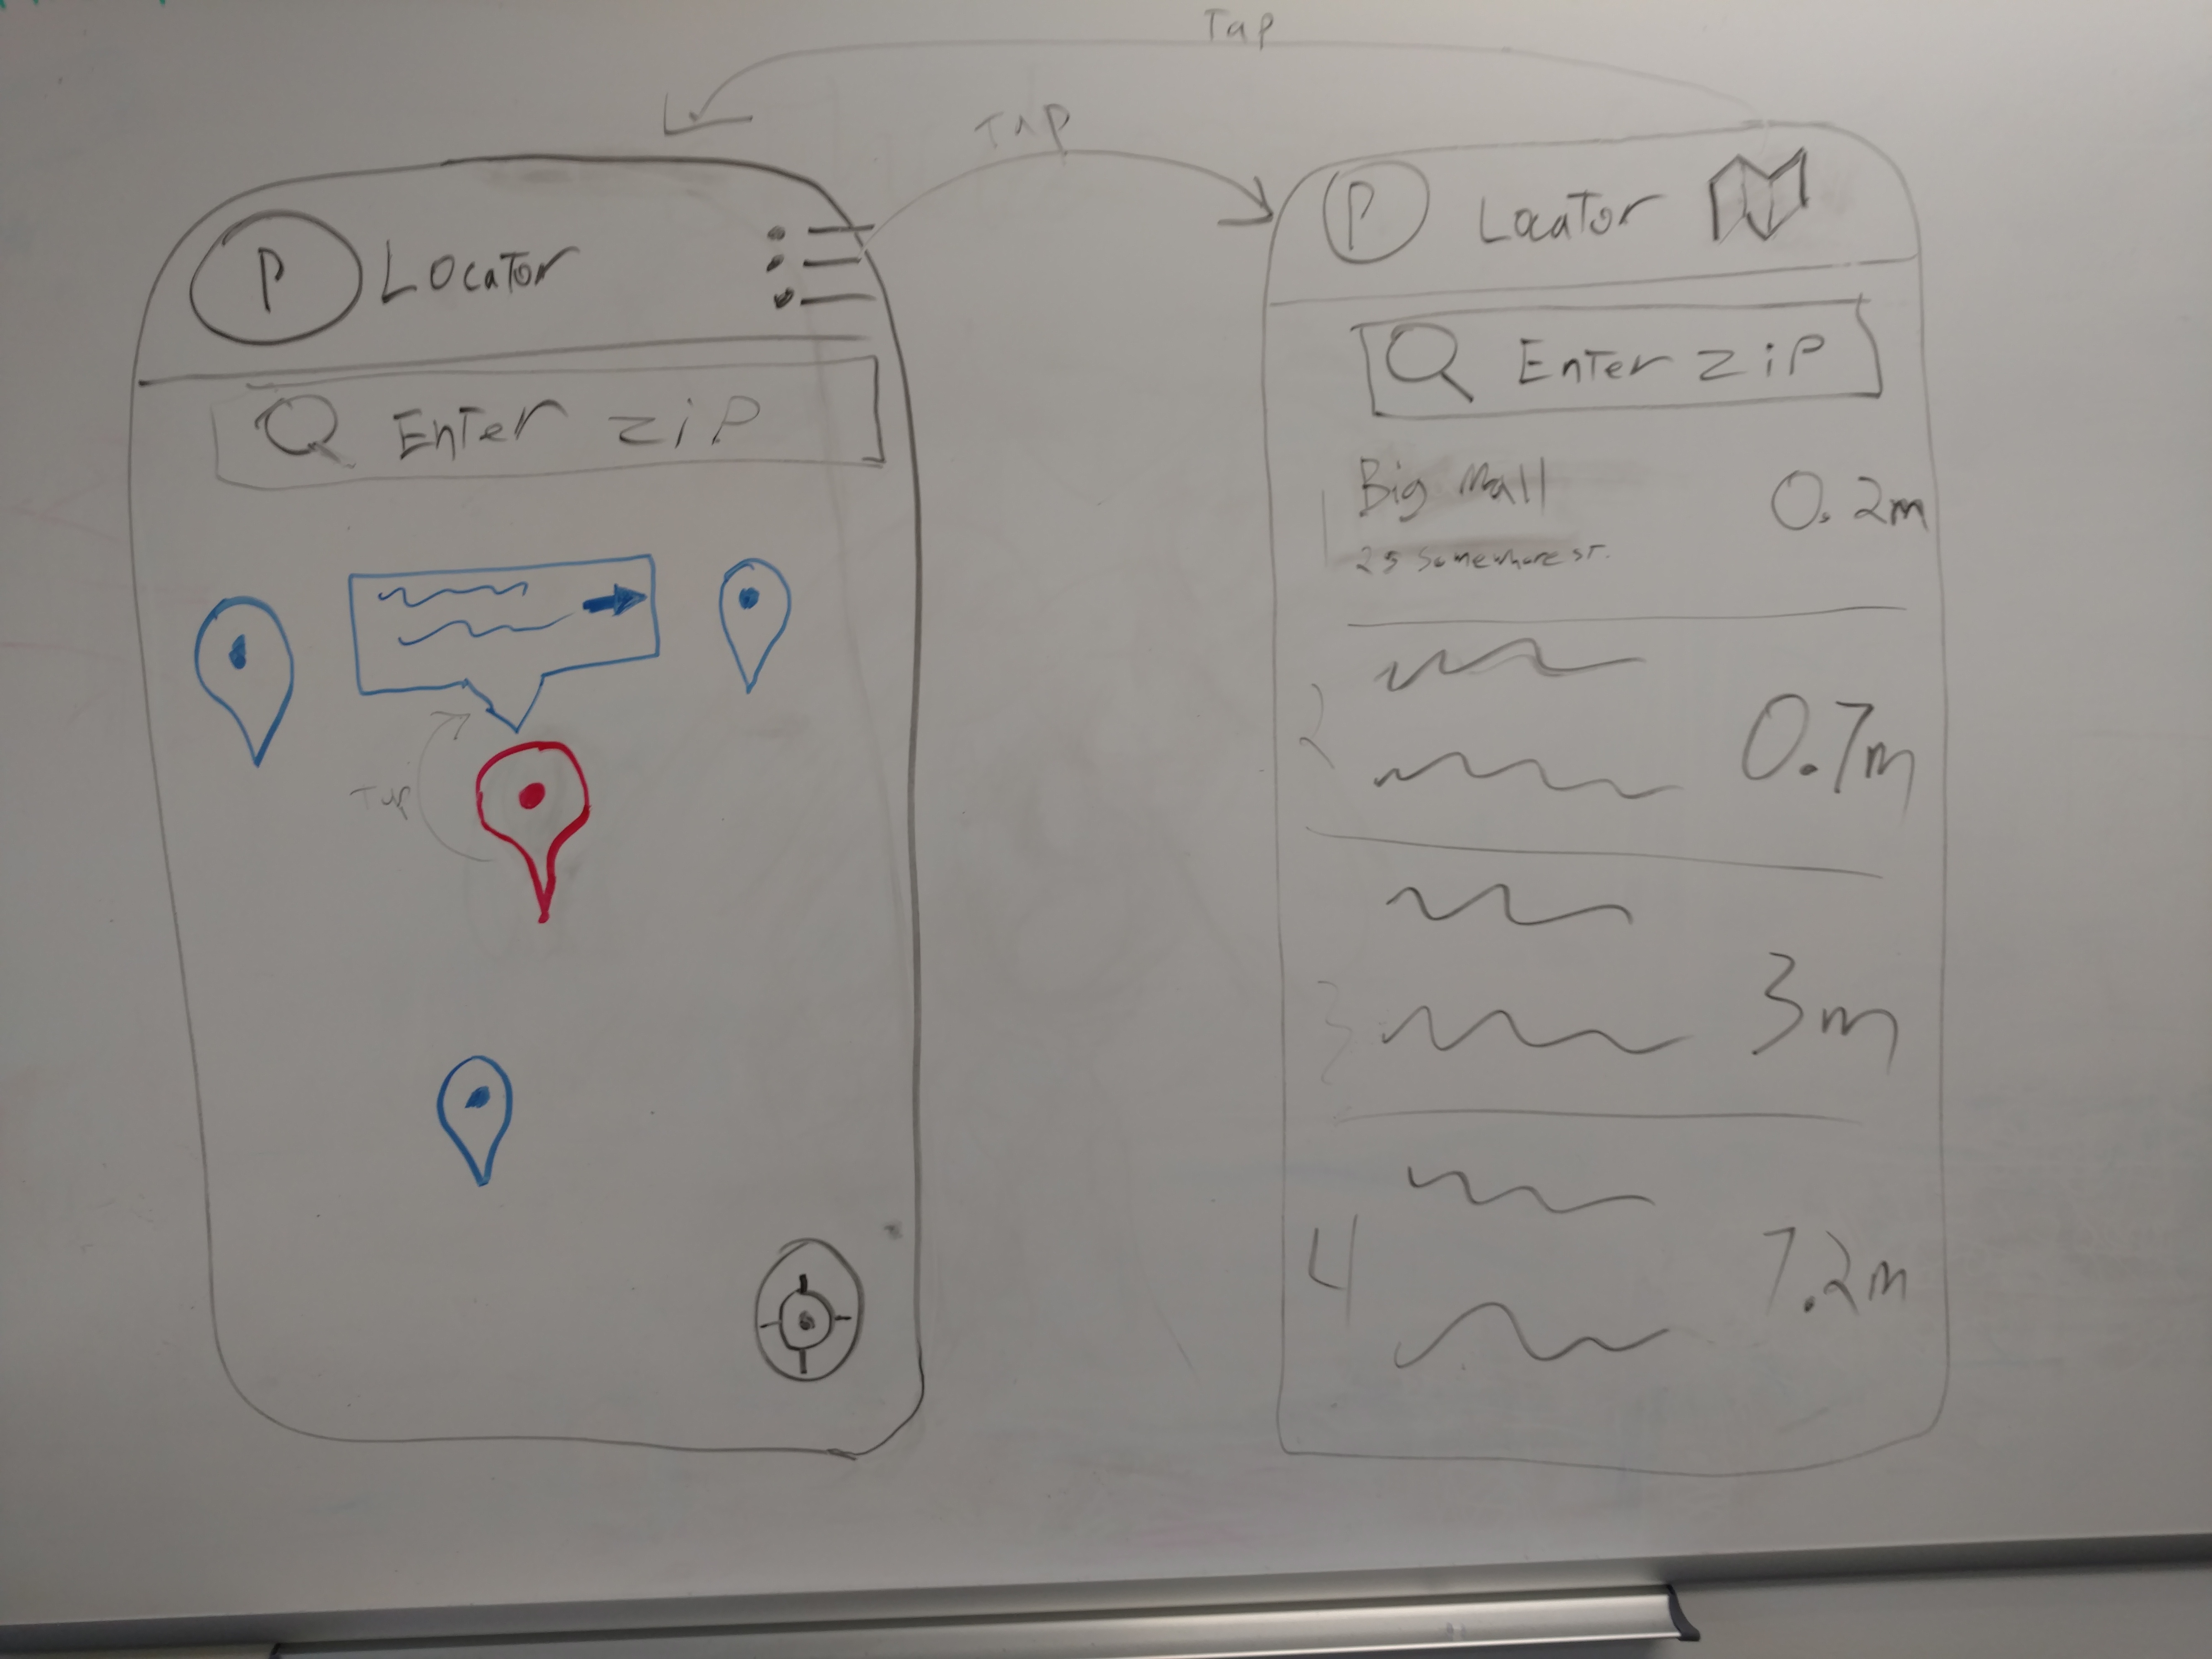 Tap
TAP
P Locator
Enter zip
Tap
P Locator
Enter zip
1 Big Mall 0.2m
25 Somewhere st.
2 0.7m
3 3m
4 7.2m